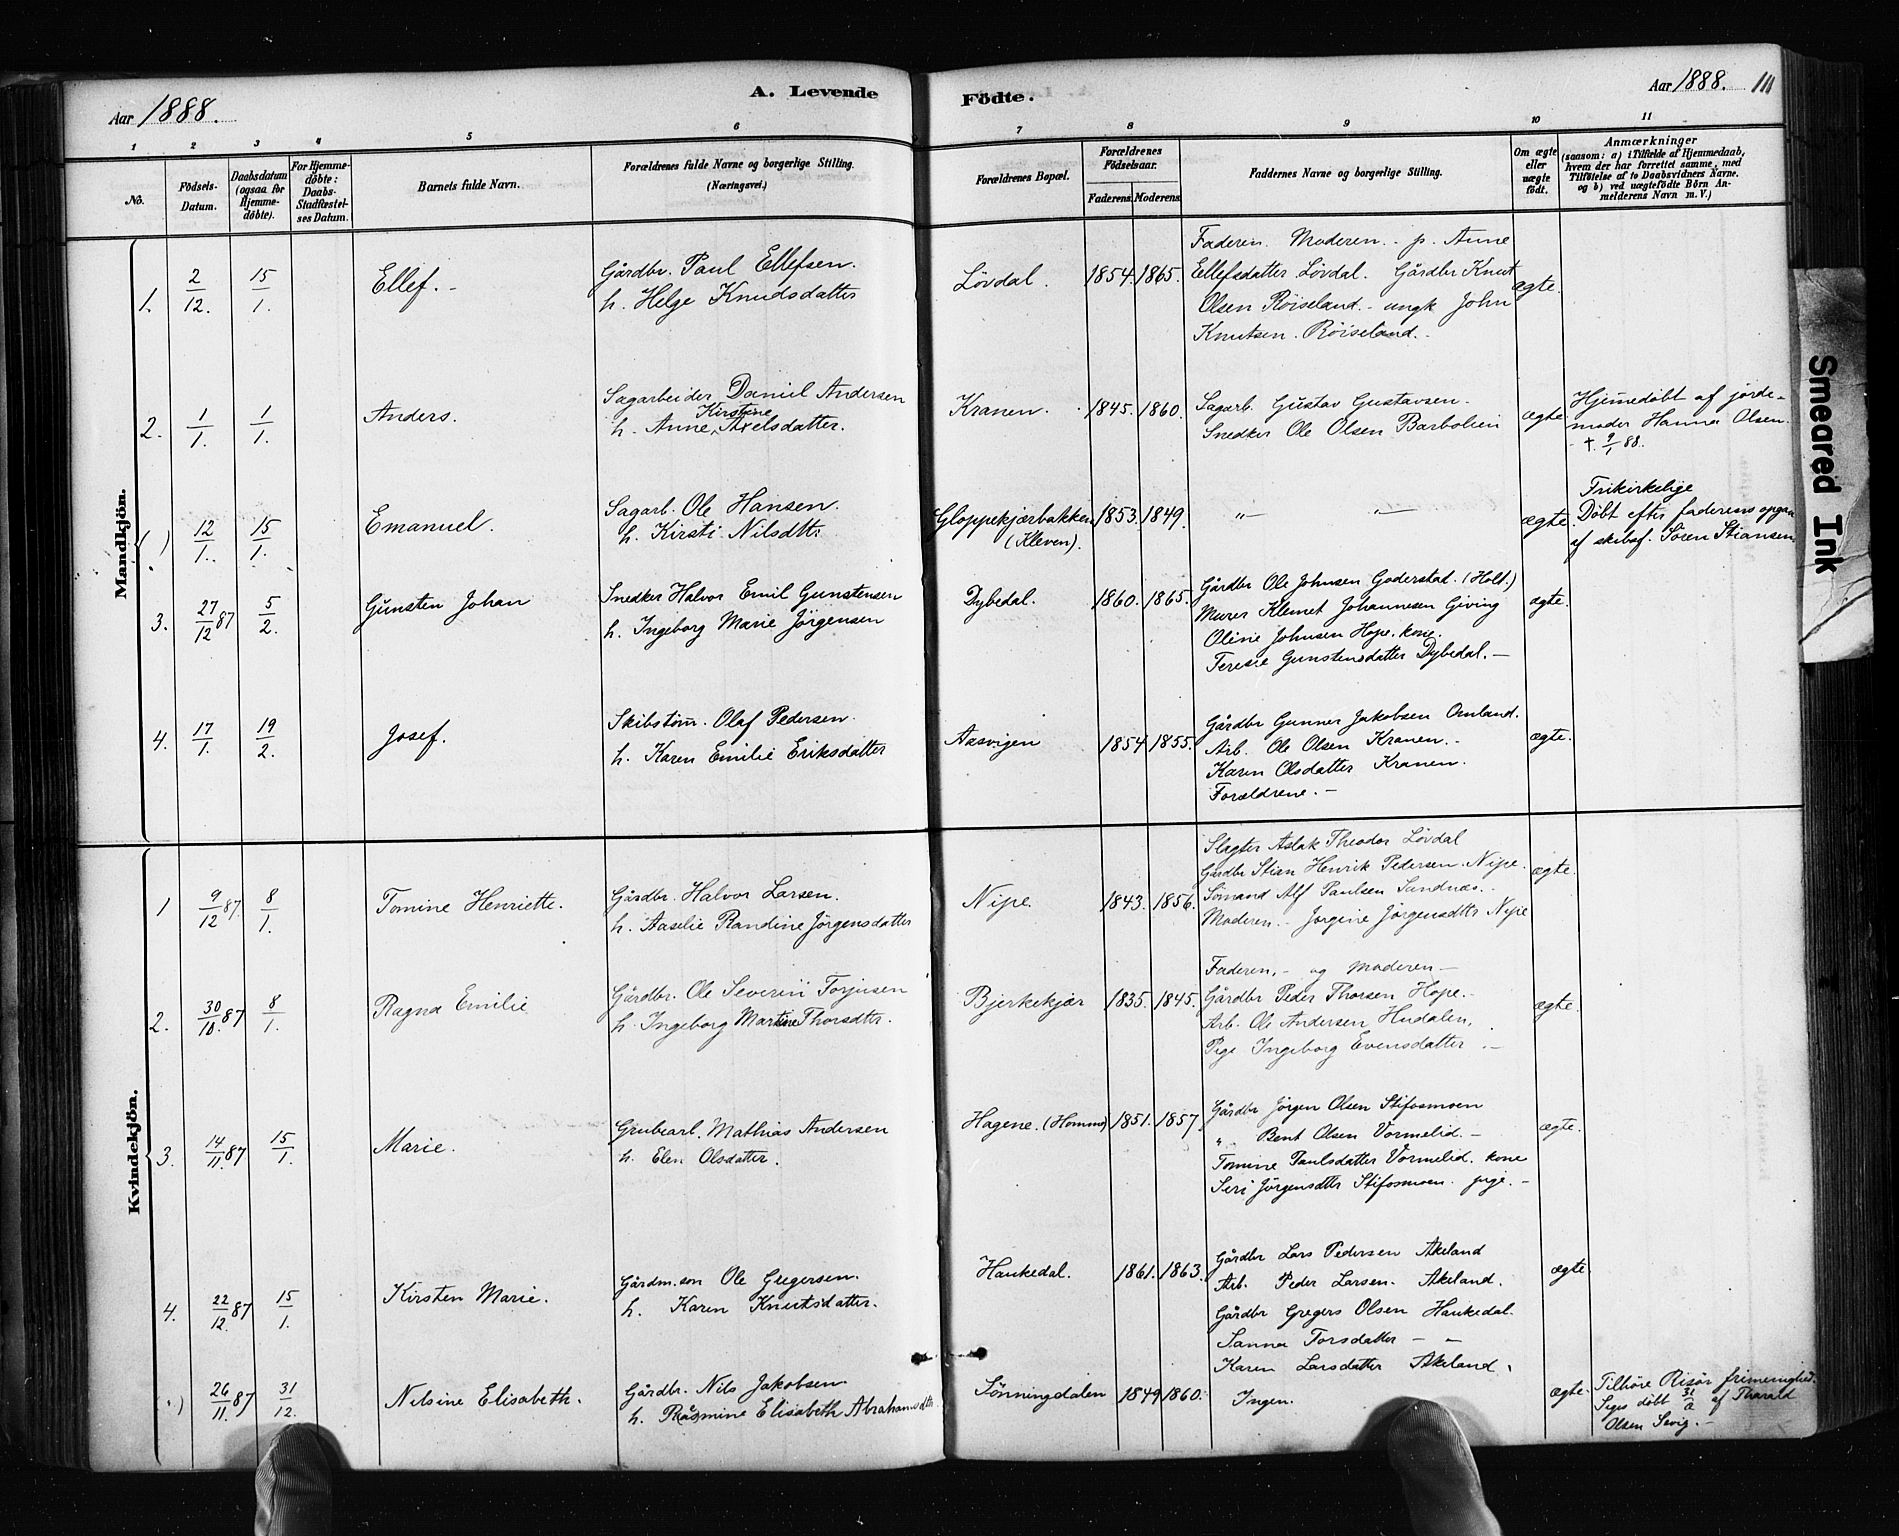 Aar 1888.
A. Levende
Födte.
Aar 1888. 111
1 2 3 4 5 6 7 8 9 10 11
No.
Födsels-Datum.
Daabsdatum (ogsaa for Hjemmedöbte).
For Hjemmedöbte: Daabs-Stadfæstelses Datum.
Barnets fulde Navn.
Forældrenes fulde Navne og borgerlige Stilling. (Næringsvei.)
Forældrenes Bopæl.
Forældrenes Födselsaar.
Faderens. Moderens.
Faddernes Navne og borgerlige Stilling.
Om ægte eller uægte födt.
Anmærkninger
(saasom: a) i Tilfælde af Hjemmedaab, hvem der har forrettet samme, med Tilföielse af to Daabsvidners Navne, og b) ved uægtefödte Börn Anmelderens Navn m. V.)
Mandkjön.
1. 2/12. 15/1. Ellef. -
Gårdbr. Paul Ellefsen.
h. Helge Knudsdatter
Lövdal. 1854. 1865.
Faderen. Moderen. - p. Anne
Ellefsdatter Lövdal. Gårdbr Knut
Olsen Röiseland. - ungk John
Knutsen. Röiseland. -
ægte.
2. 1/1. 1/1. Anders.
Sagarbeider Daniel Andersen
Kirstine
h. Anne Axelsdatter.
Kranen. 1845. 1860.
Sagarb. Gustav Gustavsen.
Snedker Ole Olsen Barbolien
ægte
Hjemmedöbt af jorde-
moder Hanna Olsen.
+. 9/1 88.
( ) 12/1. 15/1. Emanuel.
Sagarb. Ole Hansen.
h. Kirsti Nilsdtr.
Gloppekjærbakken
(Kleven).
1853. 1849.
" "
ægte
Frikirkelige
Döbt efter faderens opgav
af skibsf. Sören Stiansen
3. 27/12 87 5/2. Gunsten Johan
Snedker Halvor Emil Gunstensen
h. Ingeborg Marie Jörgensen
Dybedal. 1860. 1865.
Gårdbr Ole Johnsen Goderstad. (Holt.)
Murer Klemet Johannesen Giving
Oline Johnsen Hope. kone.
Teresie Gunstensdatter Dybedal. -
ægte.
4. 17/1. 19/2. Josef.
Skibstöm. Olaf Pedersen.
h. Karen Emilie Eriksdatter
Aasvigen 1854 1855.
Gårdbr Gunner Jakobsen Omland.
Arb. Ole Olsen Kranen. -
Karen Olsdatter Kranen.
Forældrene. -
ægte.
Kvindekjön.
1 9/12 87. 8/1. Tomine Henriette.
Gårdbr. Halvor Larsen.
h. Aaselie Randine Jörgensdatter
Nipe. 1843. 1856.
Slagter Aslak Theodor Lövdal
Gårdbr Stian Henrik Pedersen. Nipe.
Sömand Alf Paulsen Sandnæs.
Moderen. - Jorgine Jörgensdtr Nipe
ægte.
2. 30/10. 87 8/1. Ragna Emilie
Gårdbr. Ole Severin Torjusen
h. Ingeborg Martine Thorsdtr.
Bjerkekjær 1835. 1845.
Faderen, - og Moderen -
Gårdbr Peder Thorsen Hope. -
Arb. Ole Andersen Hudalen,
Pige Ingeborg Evensdatter. -
ægte.
3. 14/11. 87 15/1. Marie.
Grubearb. Mathias Andersen
h. Elen Olsdatter.
Hagene. 1851. 1857.
Gårdbr Jörgen Olsen Stifosmoen
" Bent Olsen Vormelid. -
Tomine Paulsdatter Vormelid. kone
Seri Jörgensdtr Stifosmoen. pige. -
ægte.
4. 22/12. 87 15/1. Kirsten Marie.
Gårdm. sön Ole Gregersen.
h. Karen Knutsdatter.
Haukedal. 1861. 1863.
Gårdbr Lars Pedersen Akeland
Arb. Peder Larsen. Akeland.
Gårdbr Gregers Olsen Haukedal.
Sanna Torsdatter - -
Karen Larsdatter Akeland.
ægte.
26/11. 87 31/12. Nilsine Elisabeth.
Gårdbr. Nils Jakobsen
h. Rasmine Elisabeth Abrahamsdtr.
Sönningdalen 1849 1860.
Ingen.
ægte.
Tilhöre Risör frimenighed.
Siges döbt 31/12 af Tharald
Olsen Sevig. -
Smeared Ink